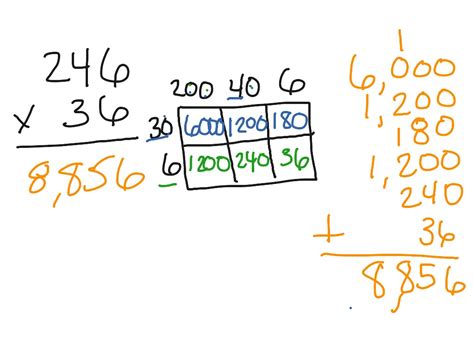 246
x 36
8,856
200 40 6
30 6000 1200 180
6 1200 240 36
1
6,000
1,200
180
1,200
240
+ 36
8,856